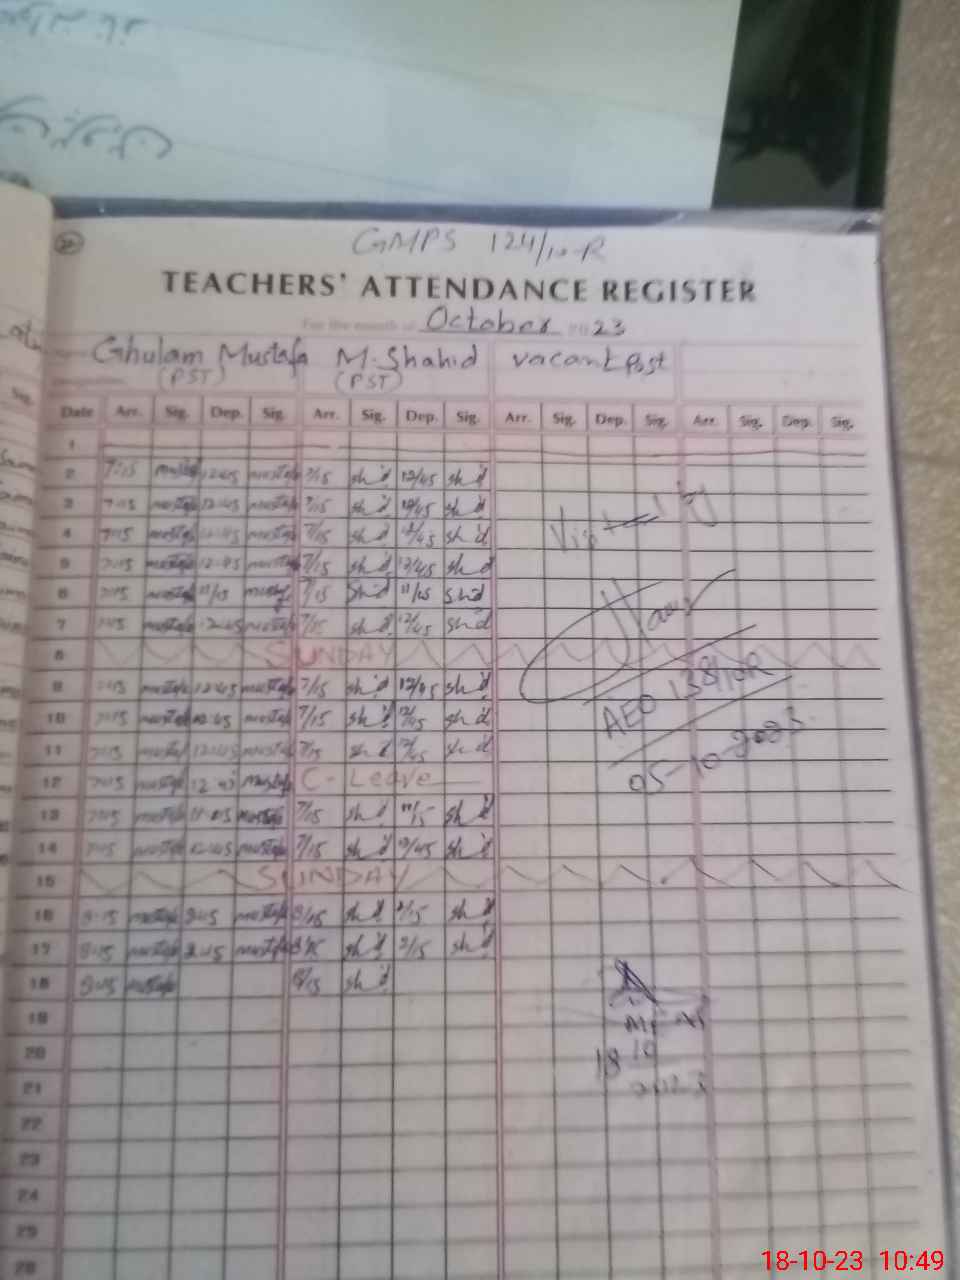 GMPS 124/10-R
TEACHERS' ATTENDANCE REGISTER
For the month of October 2023
Ghulam Mustafa M. Shahid vacant Post
(PST) (PST)
Date Arr. Sig. Dep. Sig. Arr. Sig. Dep. Sig. Arr. Sig. Dep. Sig. Arr. Sig. Dep. Sig.
1
2 7:15 mustafa 12:45 mustafa 7/15 sh'd 12/45 sh'd
3 7:15 mustafa 12:45 mustafa 7/15 sh'd 12/45 sh'd
4 7:15 mustafa 12:45 mustafa 7/15 sh'd 12/45 sh'd
5 7:15 mustafa 12:45 mustafa 7/15 sh'd 12/45 sh'd
6 7:15 mustafa 11/15 mustafa 7/15 sh'd 11/15 sh'd
7 7:15 mustafa 12:45 mustafa 7/15 sh'd 12/45 sh'd
8 SUNDAY
9 7:15 mustafa 12:45 mustafa 7/15 sh'd 12/45 sh'd
10 7:15 mustafa 12:45 mustafa 7/15 sh'd 12/45 sh'd
11 7:15 mustafa 12:45 mustafa 7/15 sh'd 12/45 sh'd
12 7:15 mustafa 12:45 mustafa C-Leave
13 7:15 mustafa mustafa 7/15 sh'd 11/15 sh'd
14 7:15 mustafa 12:45 mustafa 7/15 sh'd 12/45 sh'd
15 SUNDAY
16 8:15 mustafa 2:15 mustafa 8/15 sh'd 2/15 sh'd
17 8:15 mustafa 2:15 mustafa 8/15 sh'd 2/15 sh'd
18 8:15 mustafa 8/15 sh'd
19
20
21
22
23
24
25
26
Visited by
AEO 138/10R
05-10-2023
18 10
2023
18-10-23 10:49